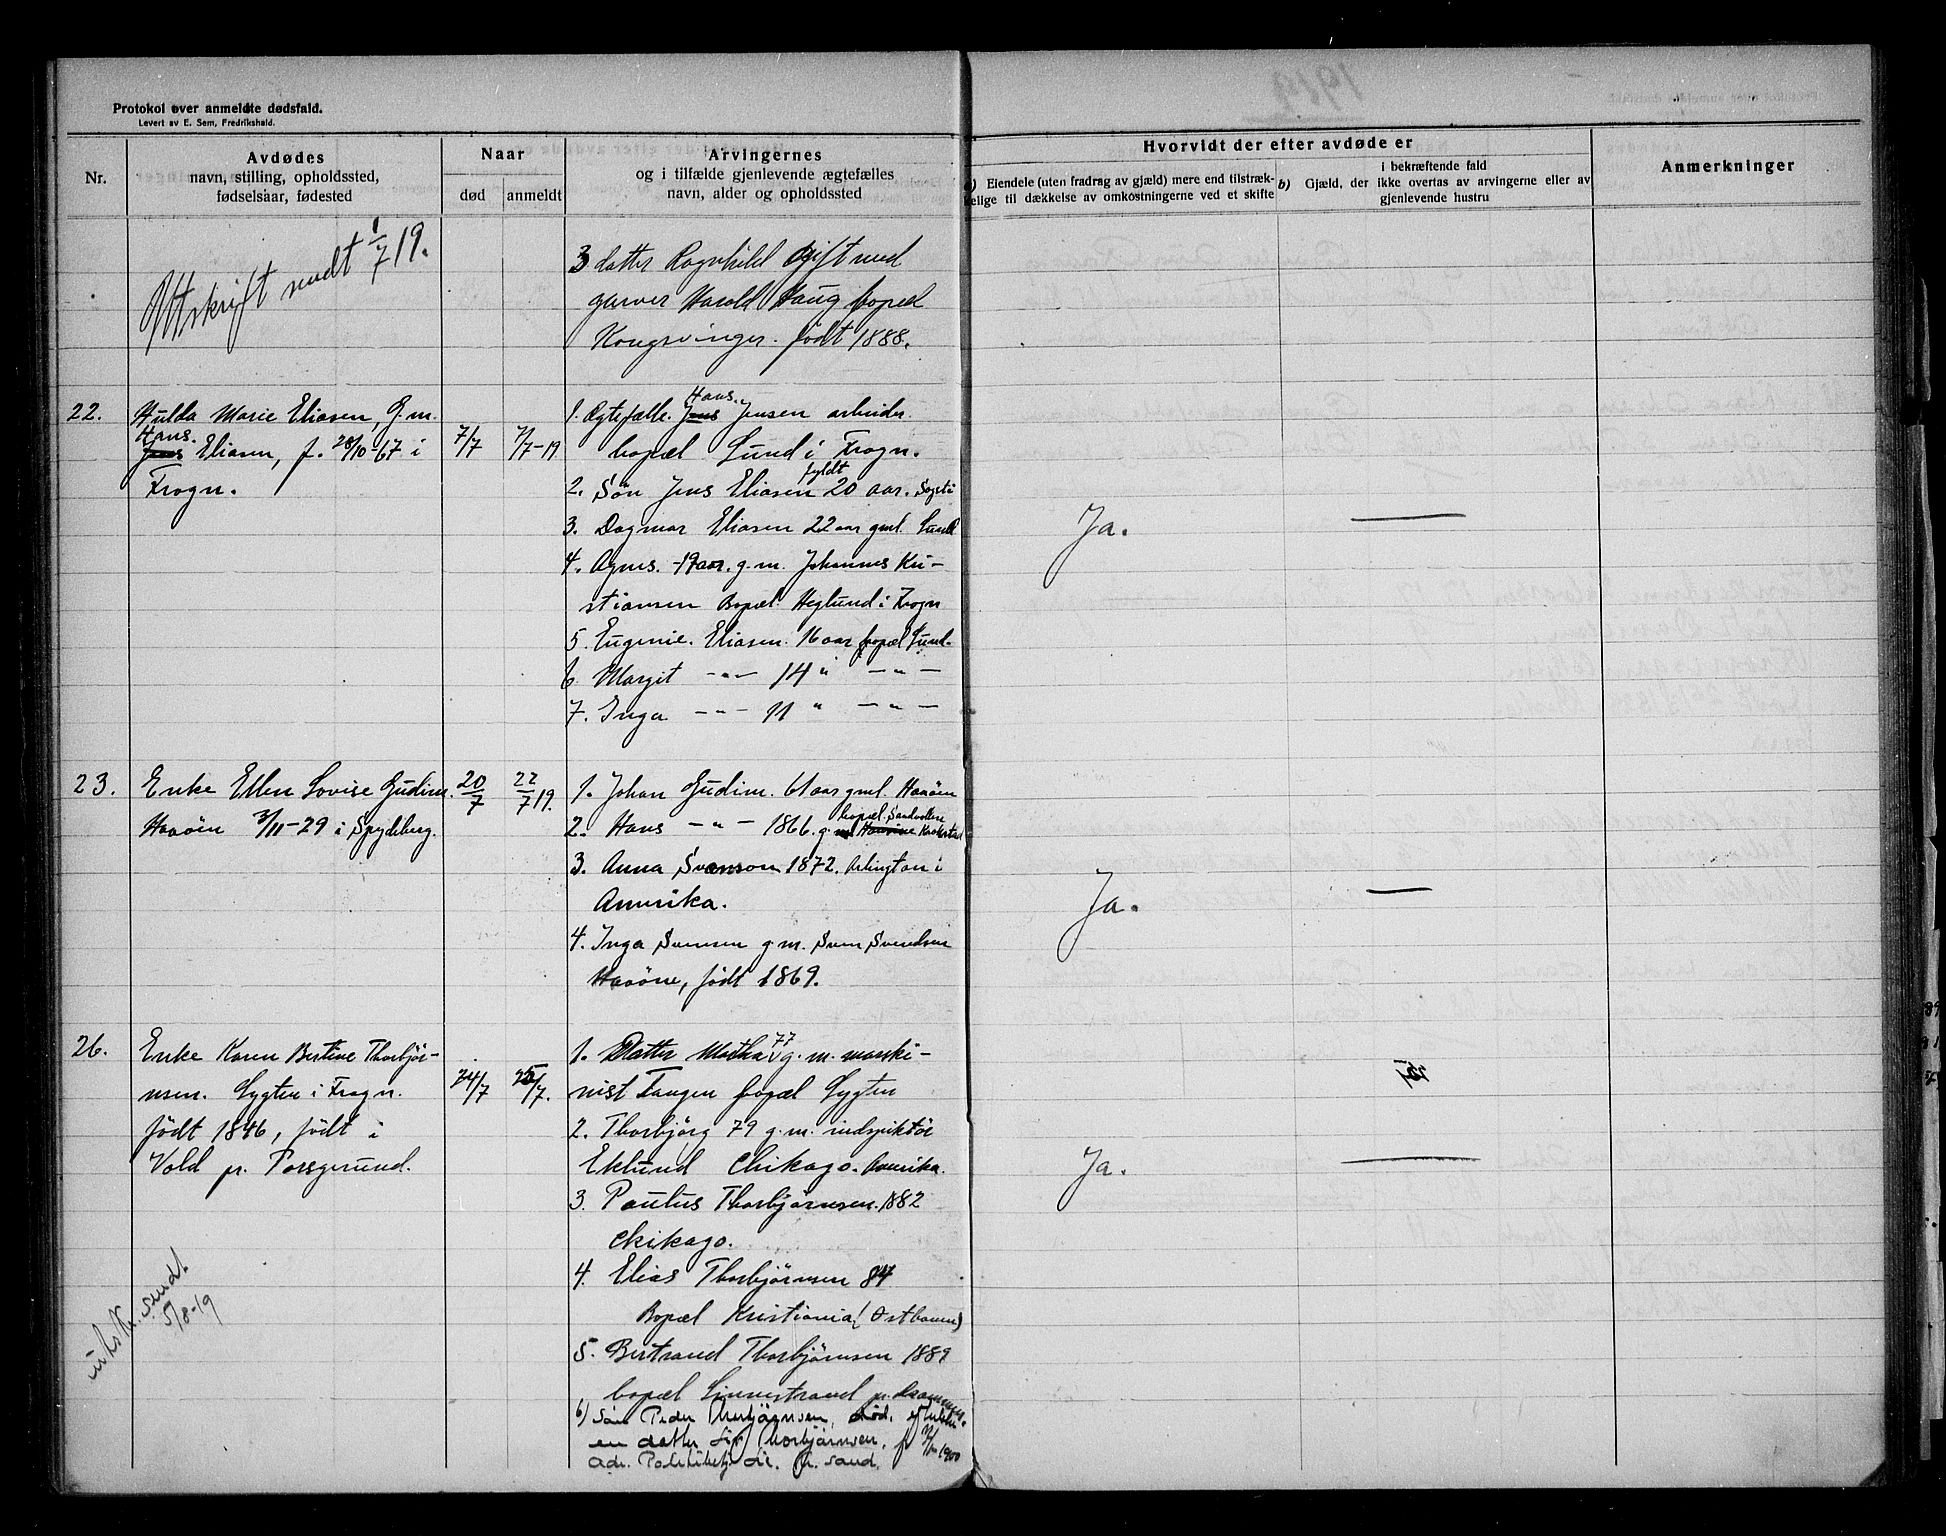 Protokol over anmeldte dødsfald.
Levert av E. Sem, Fredrikshald.
1919
Nr.
Avdødes
navn, stilling, opholdssted,
fødselsaar, fødested
Naar
død
anmeldt
Arvingernes
og i tilfælde gjenlevende ægtefælles
navn, alder og opholdssted
Hvorvidt der efter avdøde er
a) Eiendele (uten fradrag av gjæld) mere end tilstræk-
kelige til dækkelse av omkostningerne ved et skifte
b) Gjæld, der
i bekræftende fald
ikke overtas av arvingerne eller av
gjenlevende hustru
Anmerkninger
Utskrift sendt 1/7 19.
3 datter Ragnhild gift med
garver Harald Haug bopæl
Kongsvinger. født 1888.
22.
Hulda Marie Eliasen, G.m.
Hans.
Jens Eliasen, f. 28/10-67 i
Frogn.
7/7
7/7-19
Hans.
1. Ægtefælle. Jens Jensen arbeider
bopæl Lund i Frogn.
fyldt
2. Søn Jens Eliasen 20 aar.
3. Dagmar Eliasen 22 aar gml. Lund
4. Agnes. 19 aar. g.m. Johannes Kri-
stiansen Bopæl. Heglund i Frogn
5. Eugenie. Eliasen. 16 aar bopæl Lund.
6. Margit -"- 14 " -"-
7. Inga -"- 11 " -"-
Ja.
23.
Enke Ellen Lovise Gudim.
Haaøen 3/11-29 i Spydeberg.
20/7
22/7 19.
1. Johan Gudim. 61 aar gml. Haaøen
bopæl. Sandvolden
2. Hans -"- 1866. g.
3. Anna Svenson 1872. Arlington i
Amerika.
4. Inga Svensen g.m. Sven Svendsen
Haaøne, født 1869.
Ja.
26.
Enke Karen Bertine Thorbjør-
nsen. Lygten i Frogn.
født 1846, født i
Vold pr. Porsgrund.
24/7
25/7.
77
1. Datter Martha g.m. maski-
nist Tangen bopæl Lygten
2. Thorbjørg 79 g.m. indspiktør
Eklund Chikago. Amerika.
3. Paulus Thorbjørnsen. 1882
Chikago.
4. Elias Thorbjørnsen 84
Bopæl Kristiania (Østbanen)
5. Bertrand Thorbjørnsen 1889
bopæl Linnestrand pr. Drammen.
6) Søn Peder Thorbjørnsen, død.
en datter Thorbjørnsen, f
1900
Ja.
utskr. sendt.
5/8-19